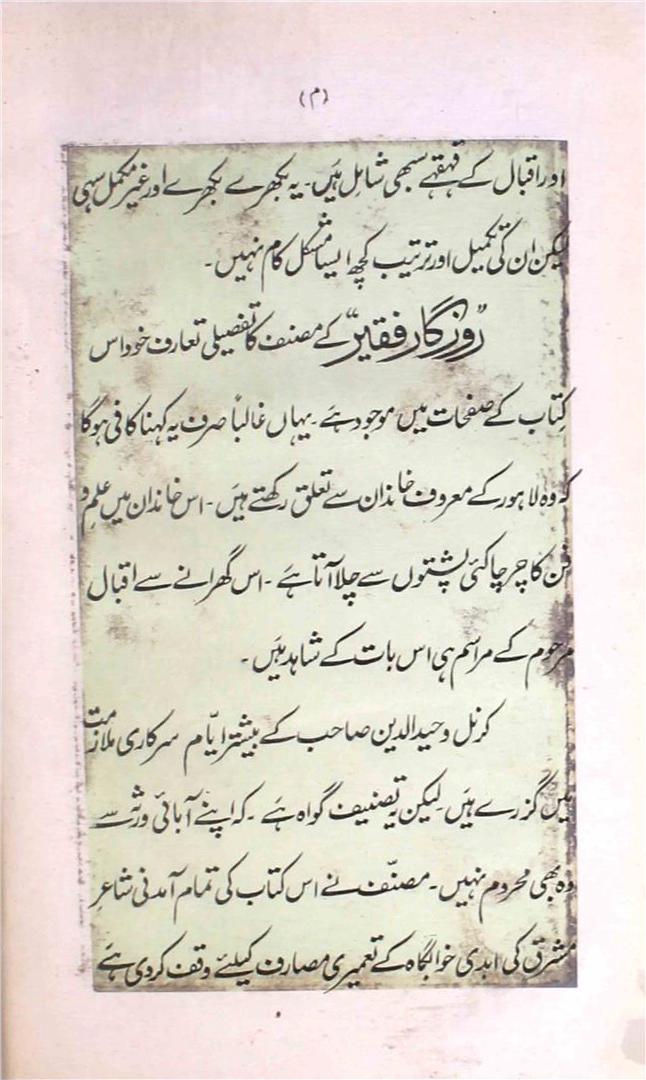 (م)
اور اقبال کے قہقہے سبھی شامل ہیں۔ یہ بکھرے بکھرے اور غیر مکمل سہی
لیکن ان کی تکمیل اور ترتیب کچھ ایسا مشکل کام نہیں۔
"روزگارِ فقیر" کے مصنف کا تفصیلی تعارف خود اس
کتاب کے صفحات میں موجود ہے۔ یہاں غالباً صرف یہ کہنا کافی ہوگا
کہ وہ لاہور کے معروف خاندان سے تعلق رکھتے ہیں۔ اس خاندان میں علم و
فن کا چرچا کئی پشتوں سے چلا آتا ہے۔ اس گھرانے سے اقبال
مرحوم کے مراسم ہی اس بات کے شاہد ہیں۔
کرنل وحیدالدین صاحب کے بیشتر ایّام سرکاری ملازمت
میں گزرے ہیں۔ لیکن یہ تصنیف گواہ ہے۔ کہ اپنے آبائی ورثہ سے
وہ بھی محروم نہیں۔ مصنّف نے اس کتاب کی تمام آمدنی شاعرِ
مشرق کی ابدی خوابگاہ کے تعمیری مصارف کیلئے وقف کر دی ہے